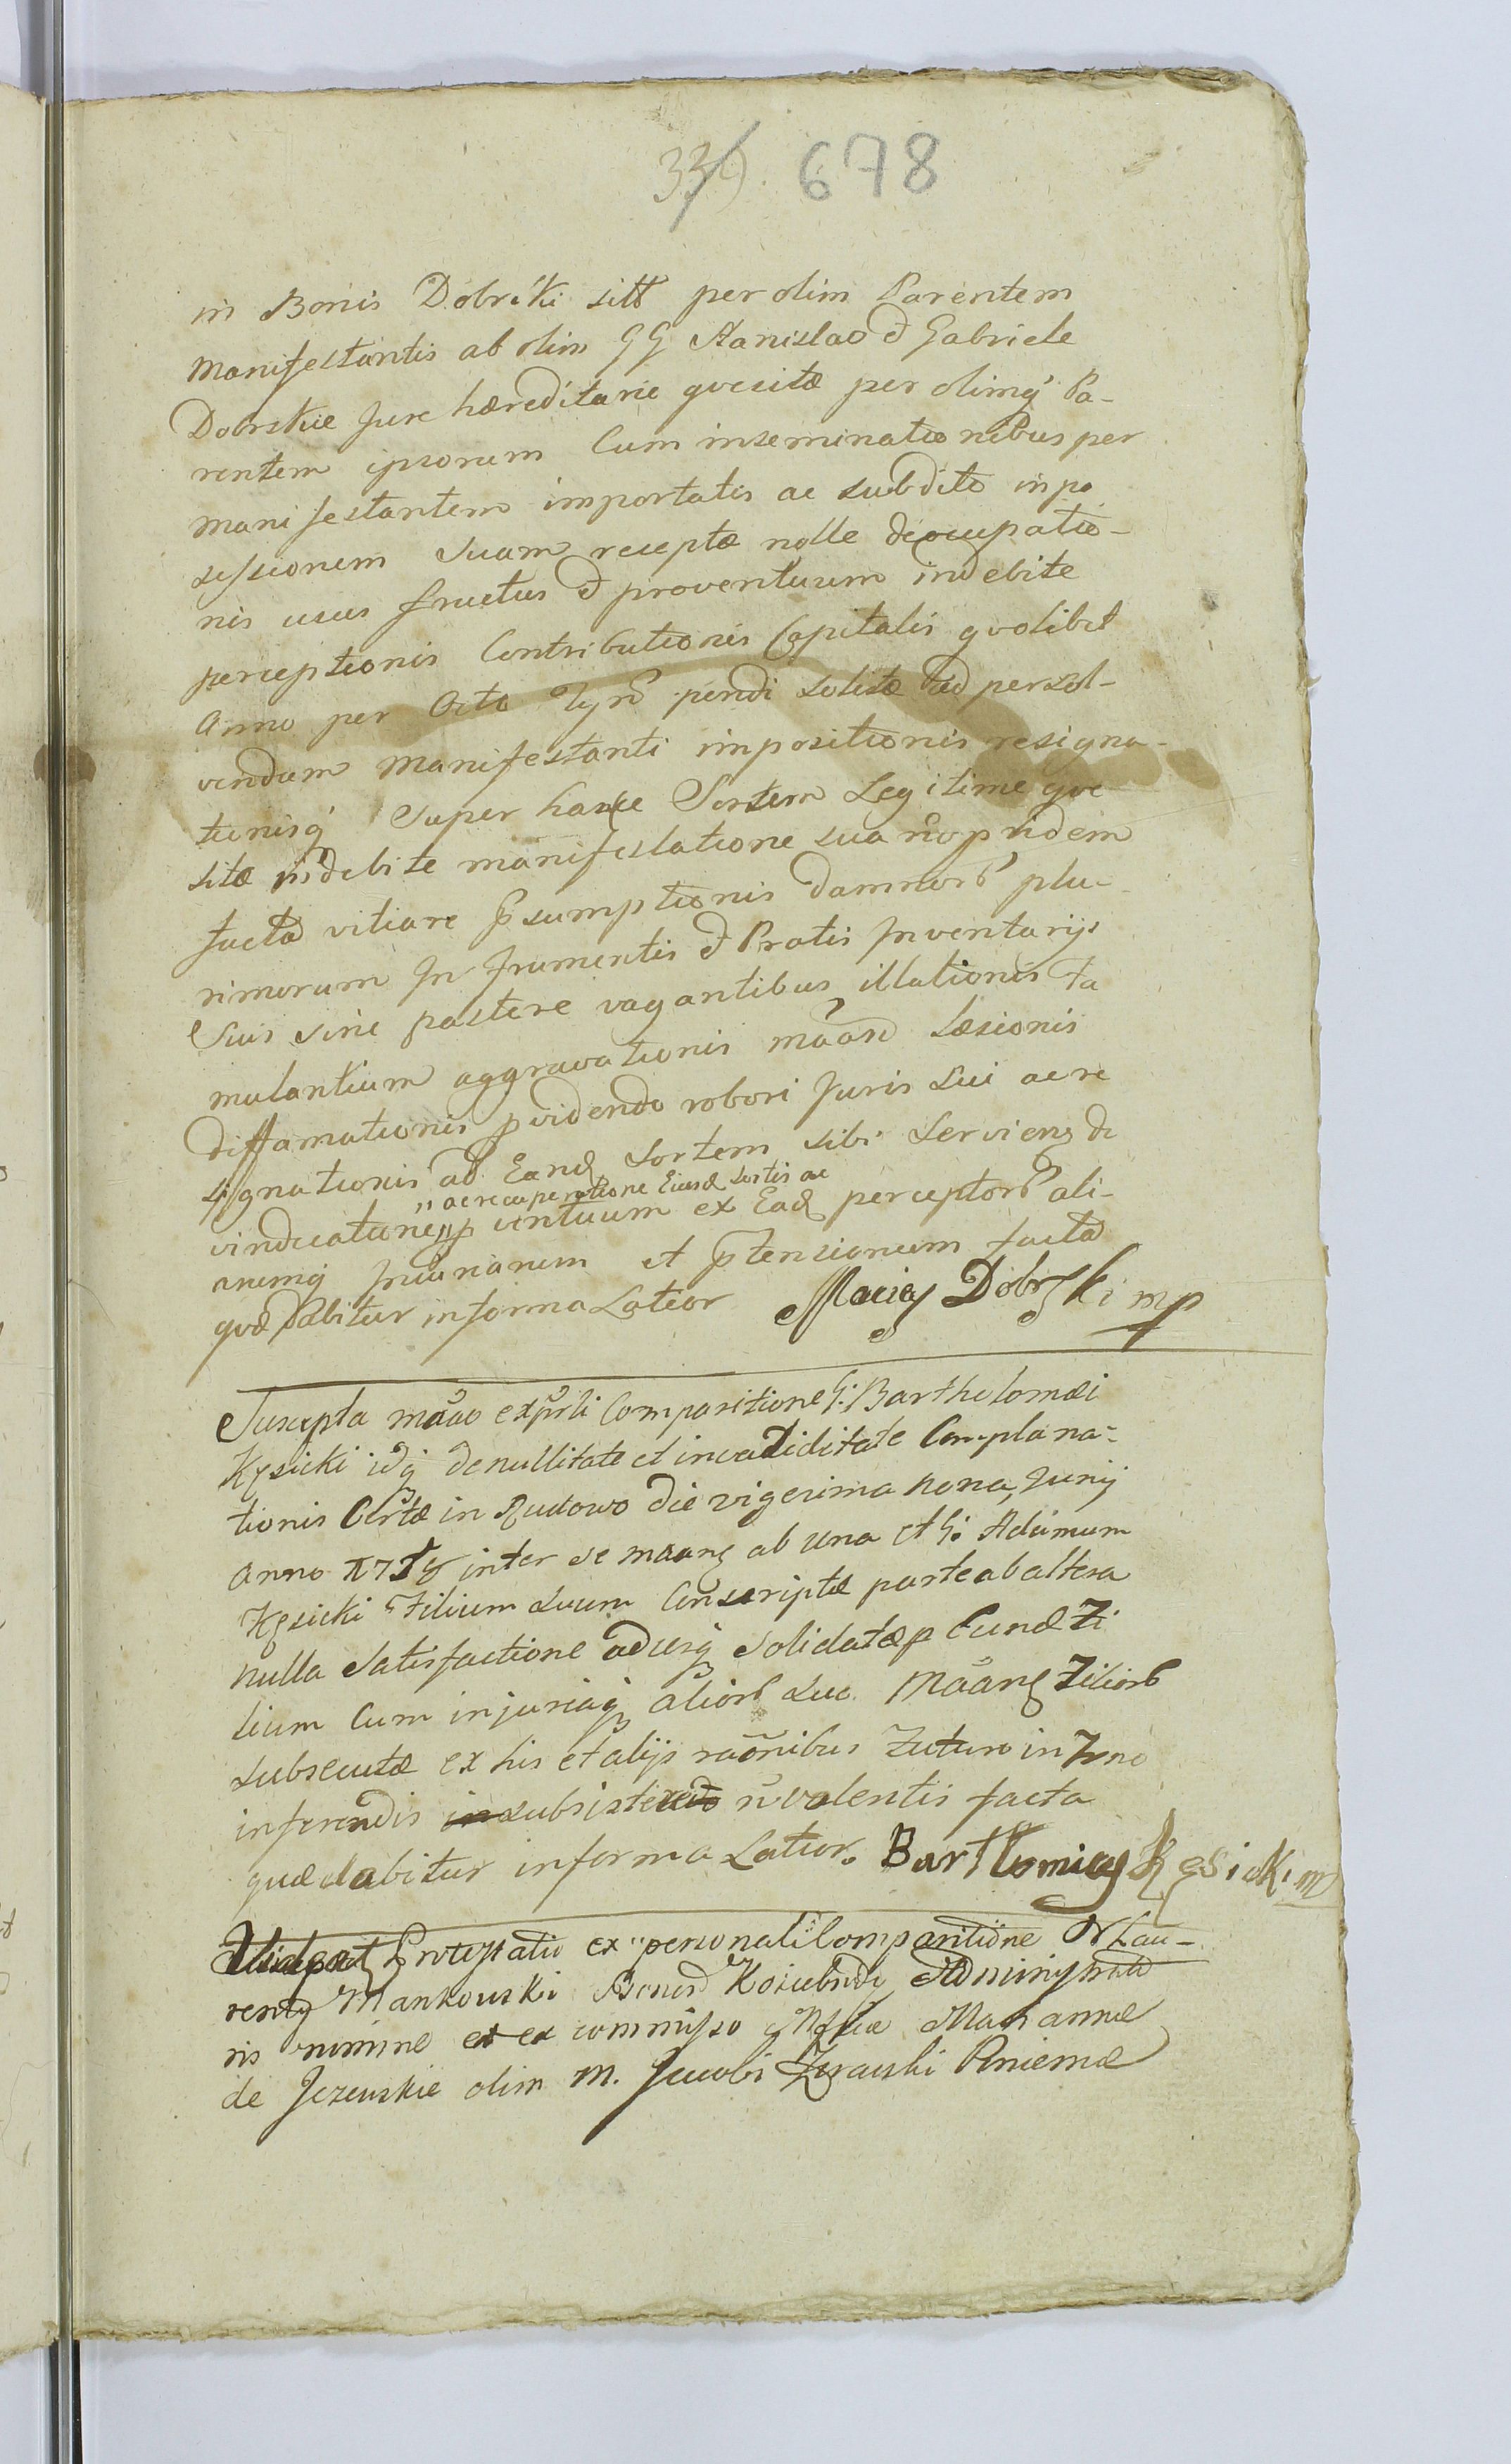 339. 678
in Bonis Dobrski sitt per olim Parentem
Manifestantis ab olim GG Stanislao & Gabriele
Dobrskie Jure hæreditarie qvesitæ per olimq Pa-
rentem ipsorum Cum inseminationibus per
manifestantem importatis ac subdito in po
ssessionem Suam receptæ nolle deocupatio-
nis usus fructus & proventuum indebite
perceptionis Contributionis Capitalis qvolibet
Anno per Octo Tyn pendi solitæ ad persol-
vendum Manifestanti impositionis resigna-
tionisq Super hance Sortem Legitime qve
sitæ indebite manifestatione sua nop ridem
facta vitiare p̄sumptionis damnorb plu-
rimorum In frumentis & Pratis Inventarijs
Suis sine pastore vagantibus illationis fa
mulantium aggravationis mâan Læsionis
diffamationis pvidendo robori Juris Sui ac re
signationis ad Eand Sortem sibi Servieng de
" ac recuperatione Eiusd sortis ac
vindicatione " p ventuum ex Ead perceptorb ali-
numq et p̄tensionem facta
qvæ dabitur in forma Latior Maciej Dobrski mp
Suscepta mâao ex prli Comparitione G: Barthelomæi
Kęsicki idq de nullitate et invaliditate Complana-
tionis Certæ in Rudowo die vigesima nona Junij
Anno inter se maang ab una et G: Adamum
Kęsicki Filium Suum Conscriptæ parte ab altera
nulla Satisfactione adusq Solidatæ p Eund Fi
lium Cum injuriaq aliorb suo. Mâang Filiorb
subsecutæ ex his et alijs raõnibus Futuro in Fno
inferendis in subsistendo ñ valentis facta
quæ dabitur in forma Latior. Bartłomiey Kęsicki mp
Protestatio ex personali Comparitione N Lau-
renty Mankowski Bonor Administrato
ris nomine et ex commisso Mficæ Mariannæ
de Jezewskie olim M. Jacobi Zurawski